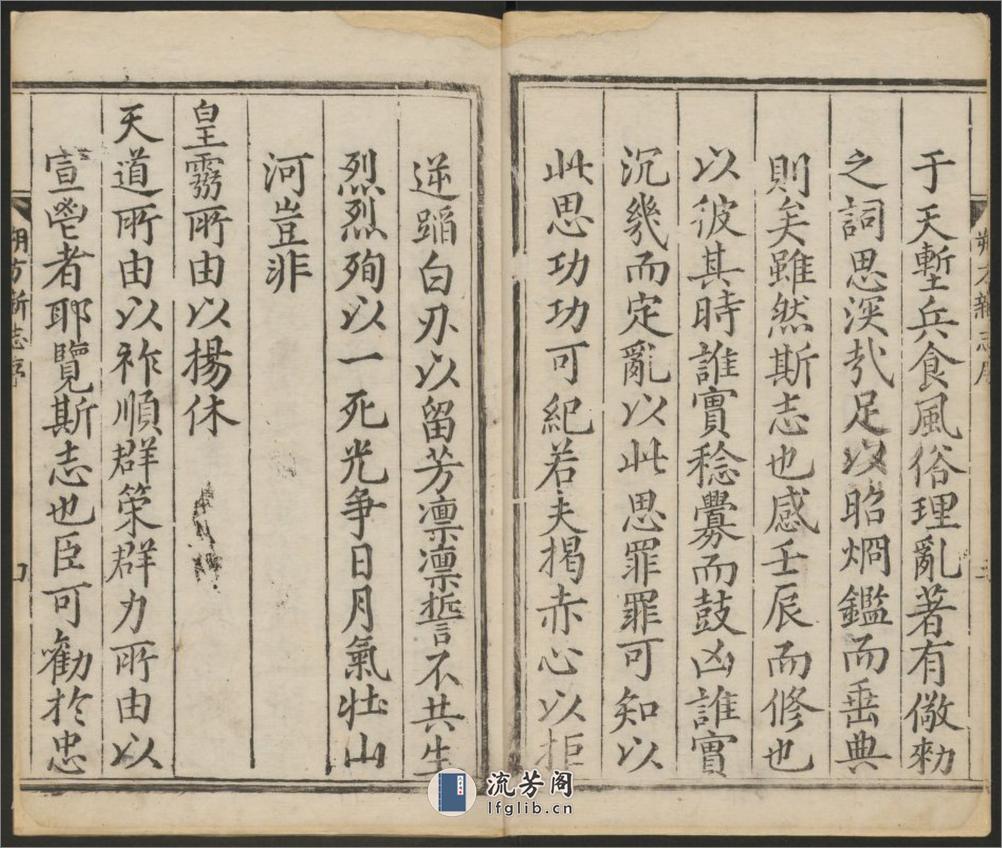 于天塹兵食風俗理亂著有儆勑
之詞思深哉足以昭烱鑑而垂典
則矣雖然斯志也感壬辰而修也
以彼其時誰實稔釁而鼓凶誰實
沉幾而定亂以此思罪罪可知以
此思功功可紀若夫揭赤心以拒
逆蹈白刃以留芳凛凛誓不共生
烈烈殉以一死光爭日月氣壯山
河豈非
皇靈所由以揚休
天道所由以祚順群策群力所由以
宣鬯者耶覽斯志也臣可勸於忠
朔方新志序
流芳阁
lfglib.cn